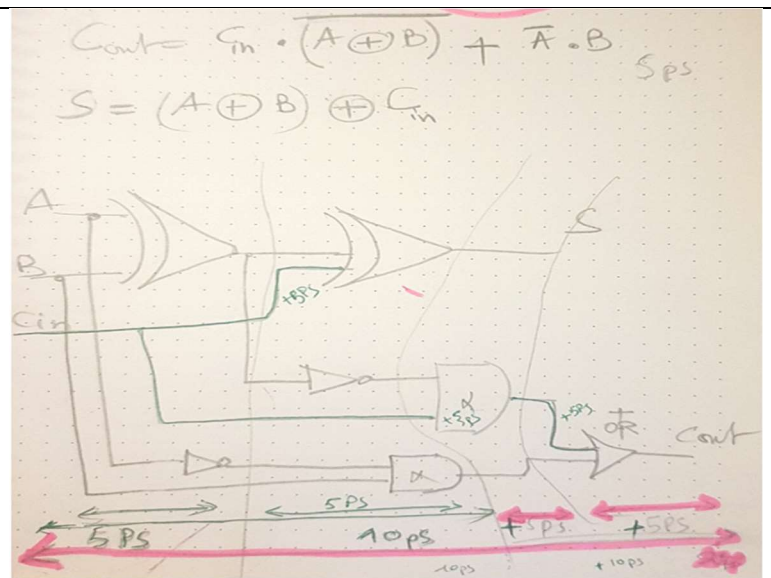 Cout = Cin · (A ⊕ B)̅ + A̅ · B
5ps
S = (A ⊕ B) ⊕ Cin
A
S
B
+5PS
Cin
α
+5ps
+5PS
OR
Cout
α
5PS
5PS
10ps
+5ps
+5ps
10ps
+10ps